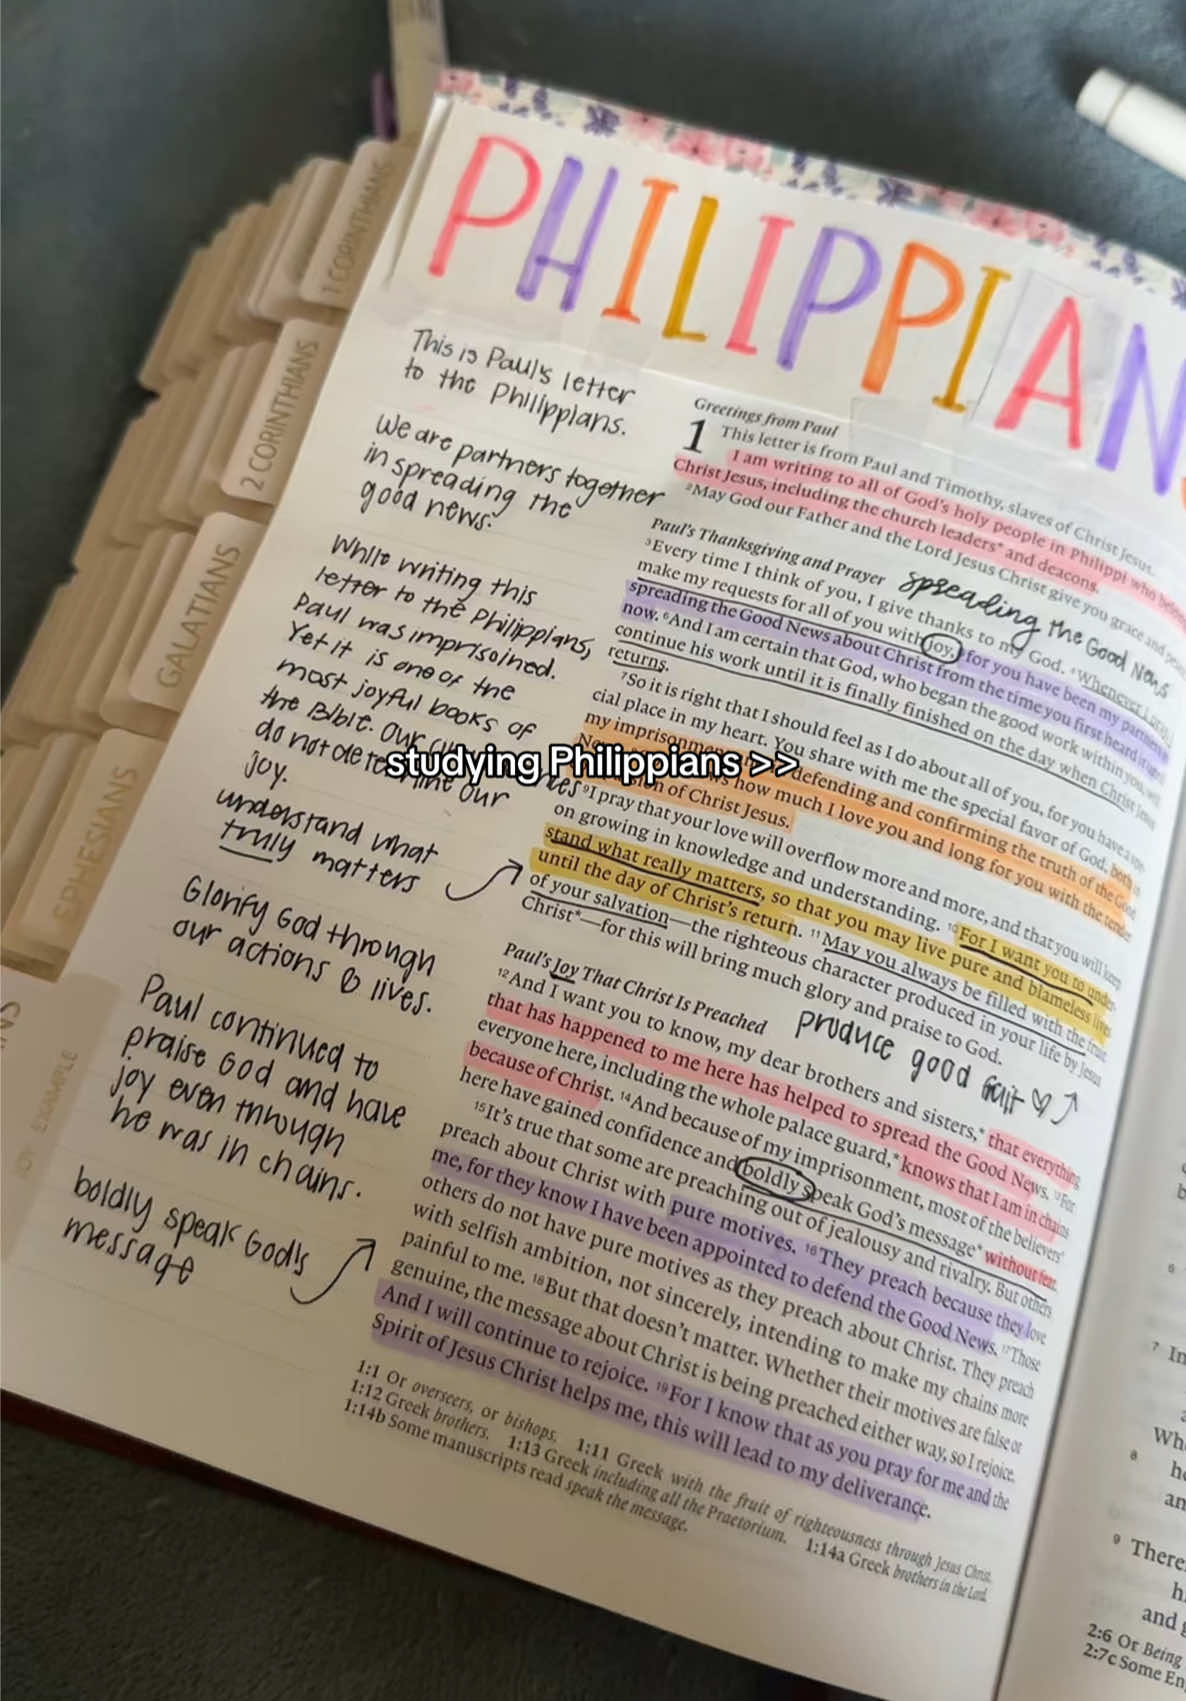 PHILIPPIANS
1 CORINTHIANS
2 CORINTHIANS
GALATIANS
EPHESIANS
JOY EXAMPLE
This is Paul's letter
to the Philippians.
We are partners together
in spreading the
good news.
While writing this
letter to the Philippians,
Paul was imprisoined.
Yet it is one of the
most joyful books of
the Bible. Our
do not determine our
joy.
understand what
truly matters
Glorify God through
our actions & lives.
Paul continued to
praise God and have
joy even through
he was in chains.
boldly speak God's
message
studying Philippians >>
Greetings from Paul
1 This letter is from Paul and Timothy, slaves of Christ Jesus.
I am writing to all of God's holy people in Philippi who belong
Christ Jesus, including the church leaders* and deacons.
2 May God our Father and the Lord Jesus Christ give you grace and
Paul's Thanksgiving and Prayer
spreading the Good News
3 Every time I think of you, I give thanks to my God. 4 Whenever I
make my requests for all of you with joy, for you have been my partners
spreading the Good News about Christ from the time you first heard it
now. 6 And I am certain that God, who began the good work within you, will
continue his work until it is finally finished on the day when Christ Jesus
returns.
7 So it is right that I should feel as I do about all of you, for you have a
cial place in my heart. You share with me the special favor of God, both in
my imprisonment defending and confirming the truth of the Good
how much I love you and long for you with the tender
of Christ Jesus.
9 I pray that your love will overflow more and more, and that you will keep
on growing in knowledge and understanding. 10 For I want you to under-
stand what really matters, so that you may live pure and blameless lives
until the day of Christ's return. 11 May you always be filled with the fruit
of your salvation—the righteous character produced in your life by Jesus
Christ*—for this will bring much glory and praise to God.
produce good fruit ♡
Paul's Joy That Christ Is Preached
12 And I want you to know, my dear brothers and sisters,* that everything
that has happened to me here has helped to spread the Good News. 13 For
everyone here, including the whole palace guard,* knows that I am in chains
because of Christ. 14 And because of my imprisonment, most of the believers*
here have gained confidence and boldly speak God's message* without fear.
15 It's true that some are preaching out of jealousy and rivalry. But others
preach about Christ with pure motives. 16 They preach because they love
me, for they know I have been appointed to defend the Good News. 17 Those
others do not have pure motives as they preach about Christ. They preach
with selfish ambition, not sincerely, intending to make my chains more
painful to me. 18 But that doesn't matter. Whether their motives are false or
genuine, the message about Christ is being preached either way, so I rejoice.
And I will continue to rejoice. 19 For I know that as you pray for me and the
Spirit of Jesus Christ helps me, this will lead to my deliverance.
1:1 Or overseers, or bishops. 1:11 Greek with the fruit of righteousness through Jesus Christ.
1:12 Greek brothers. 1:13 Greek including all the Praetorium. 1:14a Greek brothers in the Lord.
1:14b Some manuscripts read speak the message.
6
7 In
Wh
8
an
9 There
and
2:6 Or Being
2:7c Some En